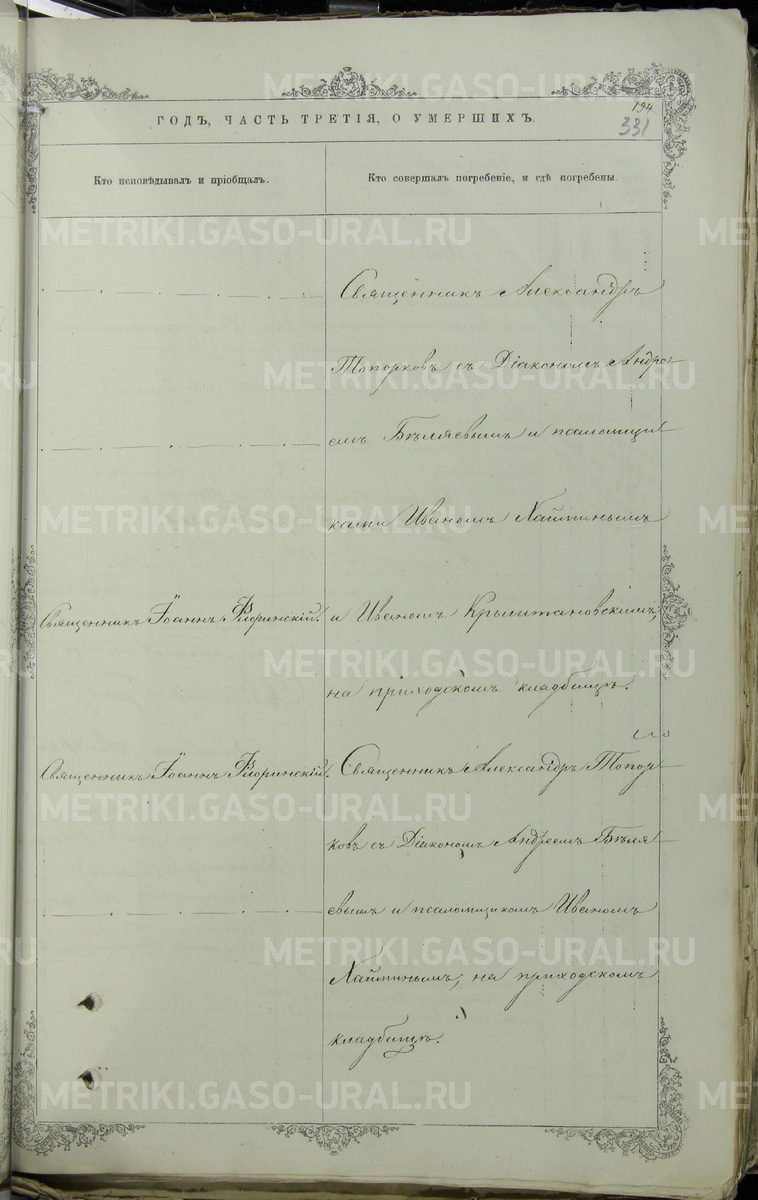 194
331
ГОДЪ, ЧАСТЬ ТРЕТІЯ, О УМЕРШИХЪ.
Кто исповѣдывалъ и пріобщалъ.
Кто совершалъ погребеніе, и гдѣ погребены.
Священникъ Александръ
Топорковъ съ Діакономъ Андре
емъ Бѣляевымъ и псаломщи
ками Иваномъ Хайминымъ
Священникъ Іоаннъ Флоринскій.
и Иваномъ Крыжановскимъ,
на приходскомъ кладбищѣ.
Священникъ Іоаннъ Флоринскій.
Священникъ Александръ Топор
ковъ съ Діакономъ Андреемъ Бѣля
евымъ и псаломщикомъ Иваномъ
Хайминымъ, на приходскомъ
кладбищѣ.
METRIKI.GASO-URAL.RU